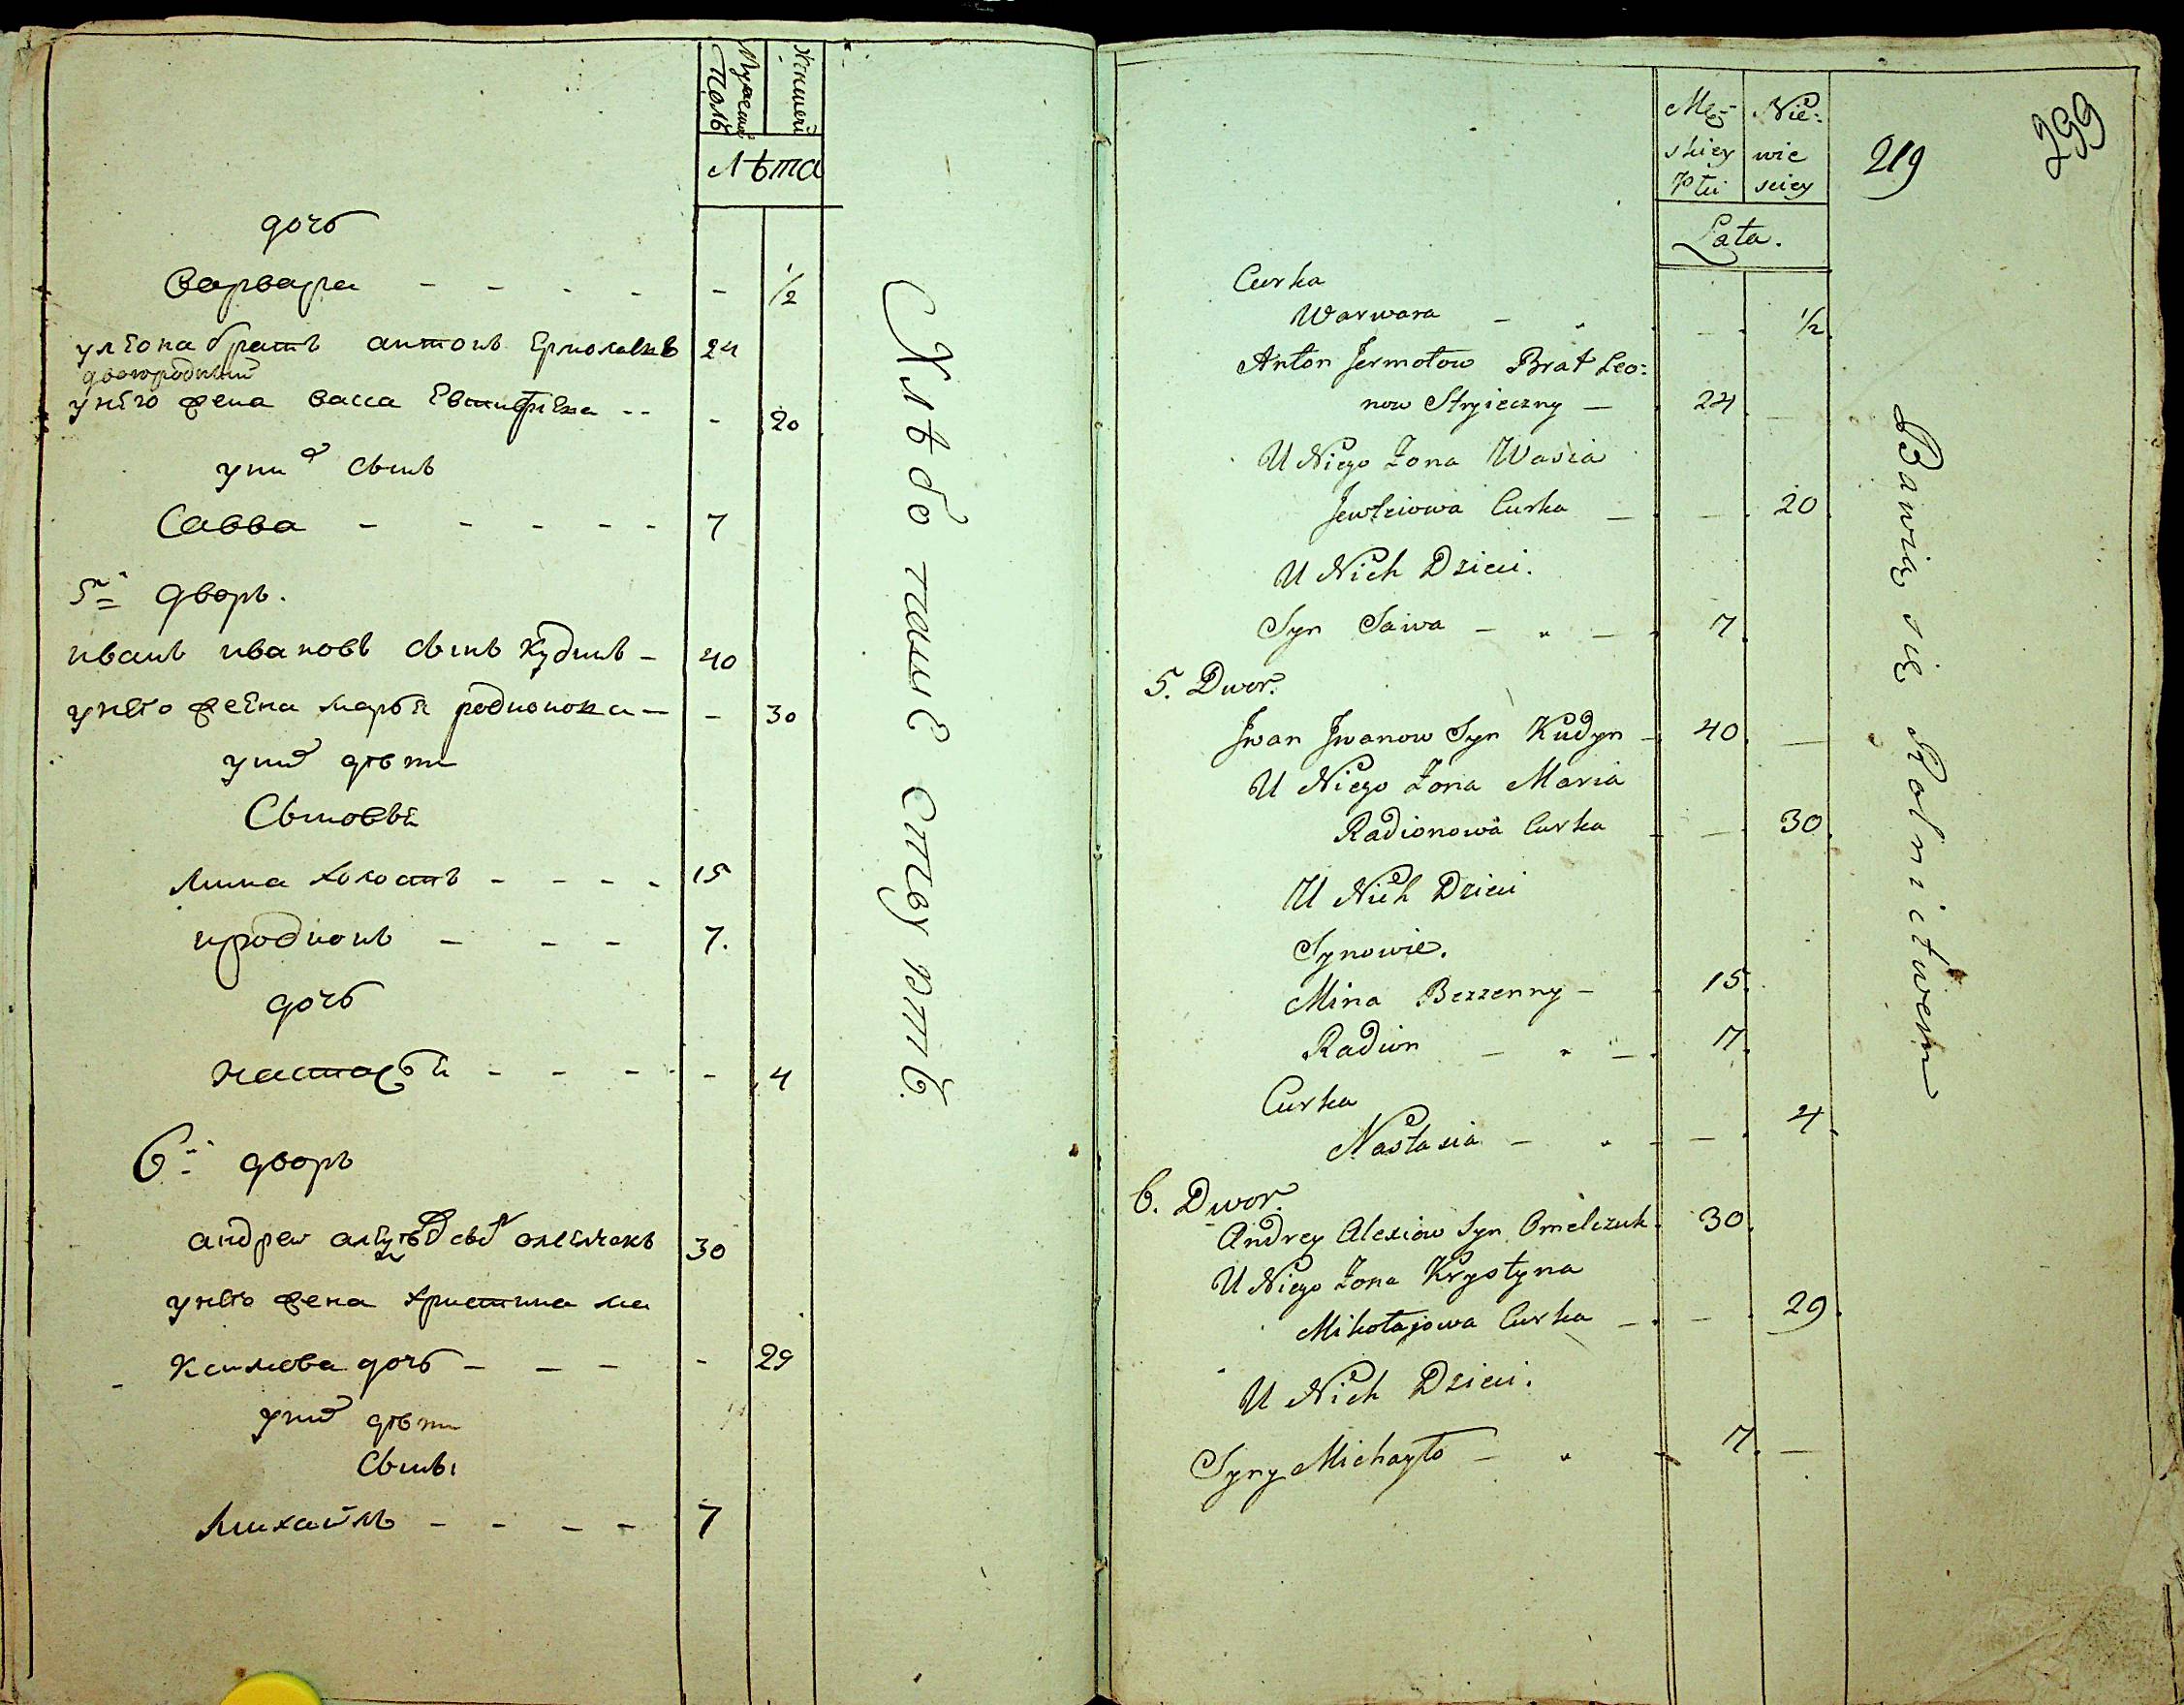 Мужеска
Полъ
Женшей
Лѣта
дочь
Варвара - - - - - - 1/2
улеона братъ антонъ Ермолаевъ 24
двоюродный
унего жена васса Евтифѣева - - - 20
уни х сынъ
Савва - - - - - 7
5й дворъ.
иванъ ивановъ сынъ Кудинъ - 40
унего жена марья родионова - - 30
уних дѣти
Сыновья
Мина холостъ - - - - 15
иродионъ - - - 7.
дочь
настасья - - - - - 4
6й дворъ
андрей алексѣевъ сынъ омелчекъ 30
унего жена христина ма
ксимова дочь - - - - 29
уних дѣти
Сыны
Михайло - - - - 7
Хлѣбо пашествуютъ.
299
219
Męz- Nie-
skiey wie
Płci sciey
Lata.
Curka
Warwara - " - - 1/2
Anton Jermołow Brat Leo:
now Stryieczny - 24 -
U Niego Zona Wasia
Jewtiowa Curka - - 20
U Nich Dzieci.
Syn Sawa - " - 7.
5. Dwor.
Jwan Jwanow Syn Kudyn - 40. -
U Niego Zona Maria
Radionowa Curka - - 30.
U Nich Dzieci
Synowie.
Mina Bezzenny - - 15.
Radion - " - 7.
Curka
Nastasia - " - - 4.
6. Dwor.
Andrey Alexiow Syn Omelczuk. 30.
U Niego Zona Krystyna
Mikołajowa Curka - - 29.
U Nich Dzieci.
Syny Michayło - " - 7. -
Bawią się Rolnictwem